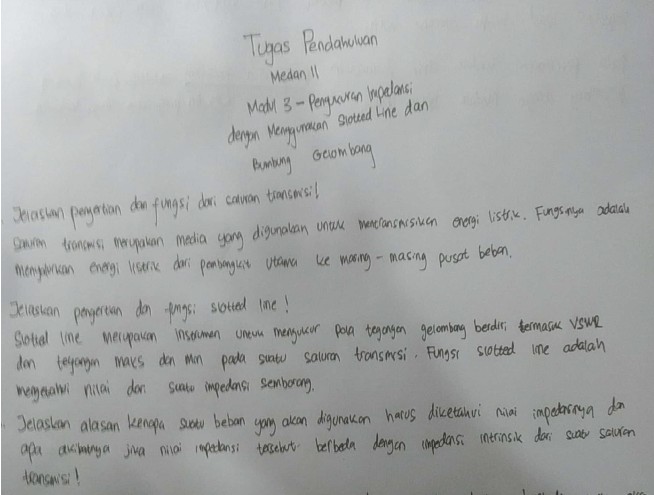 Tugas Pendahuluan
Medan II
Modul 3 - Pengukuran Impedansi
dengan Menggunakan Slotted Line dan
Bumbung Gelombang
Jelaskan pengertian dan fungsi dari saluran transmisi!
Saluran transmisi merupakan media yang digunakan untuk mentransmisikan energi listrik. Fungsinya adalah
menyalurkan energi listrik dari pembangkit utama ke masing-masing pusat beban.
Jelaskan pengertian dan fungsi slotted line!
Slotted line merupakan instrumen untuk mengukur pola tegangan gelombang berdiri termasuk VSWR
dan tegangan maks dan min pada suatu saluran transmisi. Fungsi slotted line adalah
mengetahui nilai dari suatu impedansi sembarang.
Jelaskan alasan kenapa suatu beban yang akan digunakan harus diketahui nilai impedansinya dan
apa akibatnya jika nilai impedansi tersebut berbeda dengan impedansi intrinsik dari suatu saluran
transmisi!